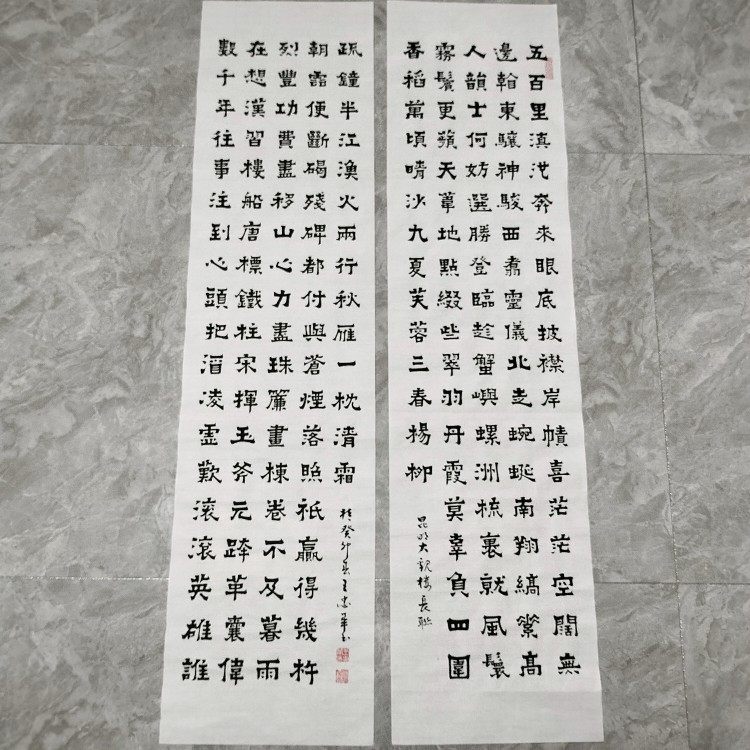 五百里滇池奔來眼底披襟岸幘喜茫茫空闊無
邊看東驤神駿西翥靈儀北走蜿蜒南翔縞素高
人韻士何妨選勝登臨趁蟹嶼螺洲梳裹就風鬟
霧鬢更蘋天葦地點綴些翠羽丹霞莫辜負四圍
香稻萬頃晴沙九夏芙蓉三春楊柳
昆明大觀樓長聯
數千年往事注到心頭把酒凌虛歎滾滾英雄誰
在想漢習樓船唐標鐵柱宋揮玉斧元跨革囊偉
烈豐功費盡移山心力盡珠簾畫棟卷不及暮雨
朝霞便斷碣殘碑都付與蒼煙落照祇贏得幾杵
疏鐘半江漁火兩行秋雁一枕清霜
於癸卯春王忠華書